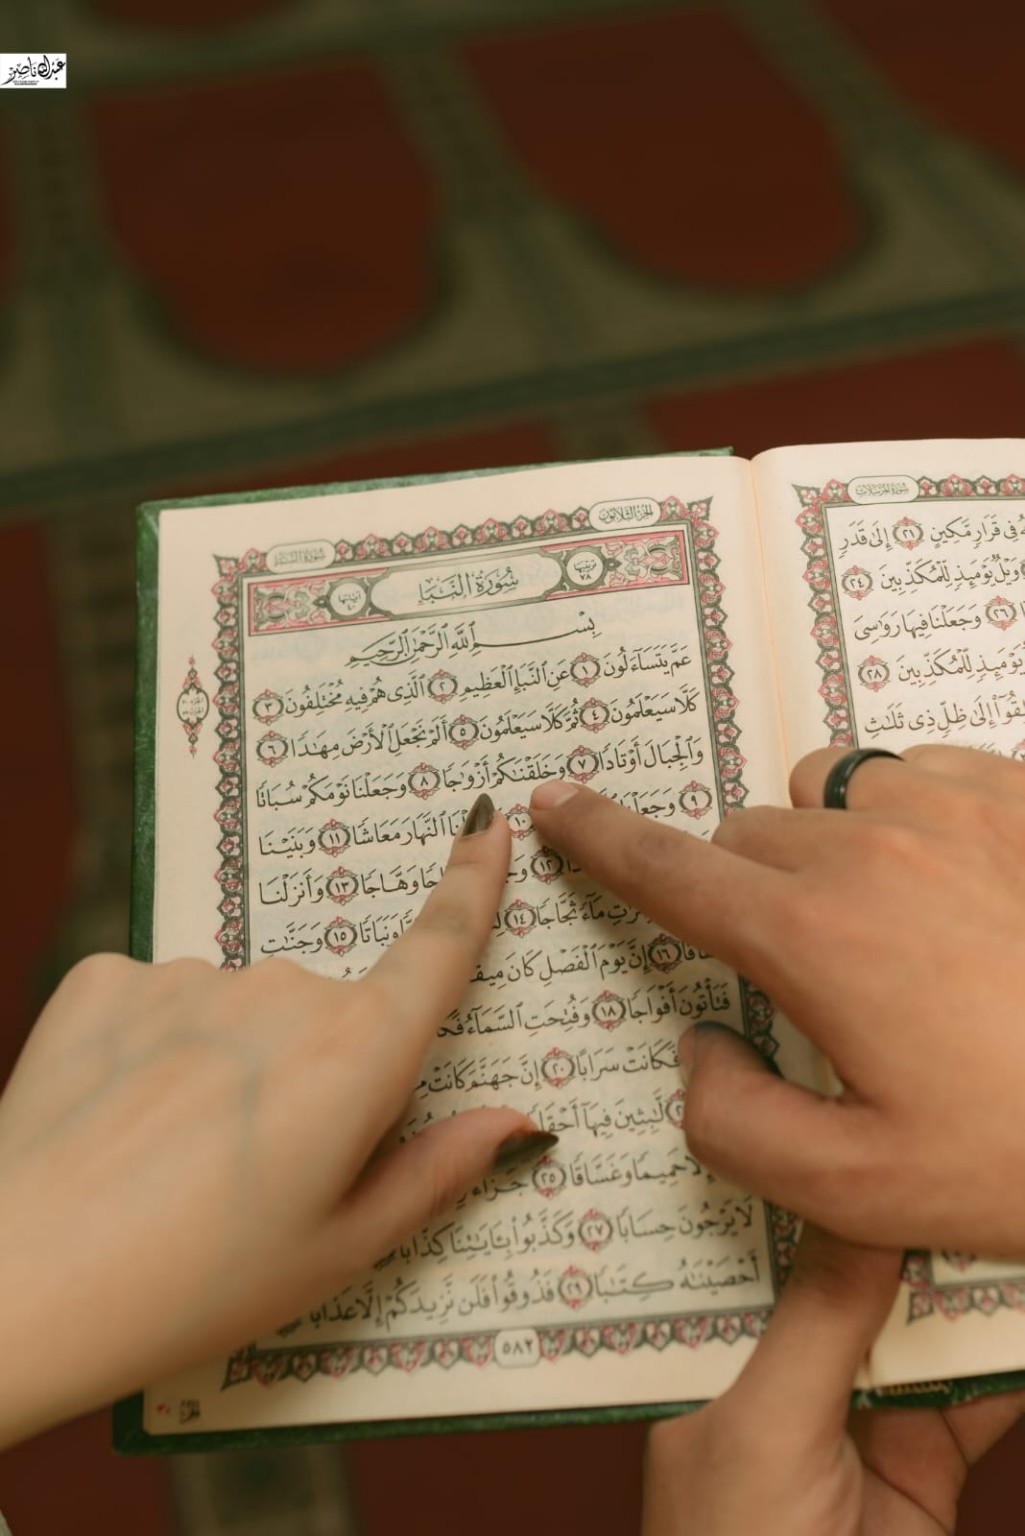 عبدك ناصر
الجزء الثلاثون
سورة النبإ
ترتيبها ٧٨
سُورَةُ النَّبَإِ
آياتها ٤٠
بِسْمِ ٱللَّهِ ٱلرَّحْمَٰنِ ٱلرَّحِيمِ
عَمَّ يَتَسَآءَلُونَ ١ عَنِ ٱلنَّبَإِ ٱلْعَظِيمِ ٢ ٱلَّذِى هُمْ فِيهِ مُخْتَلِفُونَ ٣
كَلَّا سَيَعْلَمُونَ ٤ ثُمَّ كَلَّا سَيَعْلَمُونَ ٥ أَلَمْ نَجْعَلِ ٱلْأَرْضَ مِهَٰدًا ٦
وَٱلْجِبَالَ أَوْتَادًا ٧ وَخَلَقْنَٰكُمْ أَزْوَٰجًا ٨ وَجَعَلْنَا نَوْمَكُمْ سُبَاتًا
٩ وَجَعَلْنَا ١٠ ٱلنَّهَارَ مَعَاشًا ١١ وَبَنَيْنَا
١٢ وَهَّاجًا ١٣ وَأَنزَلْنَا
مَآءً ثَجَّاجًا ١٤ وَنَبَاتًا ١٥ وَجَنَّٰتٍ
١٦ إِنَّ يَوْمَ ٱلْفَصْلِ كَانَ
فَتَأْتُونَ أَفْوَاجًا ١٨ وَفُتِحَتِ ٱلسَّمَآءُ
فَكَانَتْ سَرَابًا ٢٠ إِنَّ جَهَنَّمَ كَانَتْ
لَّٰبِثِينَ فِيهَآ
حَمِيمًا وَغَسَّاقًا ٢٥ جَزَآءً
لَا يَرْجُونَ حِسَابًا ٢٧ وَكَذَّبُوا۟ بِـَٔايَٰتِنَا كِذَّابًا
أَحْصَيْنَٰهُ كِتَٰبًا ٢٩ فَذُوقُوا۟ فَلَن نَّزِيدَكُمْ إِلَّا عَذَابًا
٥٨٢
سورة المرسلات
فِى قَرَارٍ مَّكِينٍ ٢١ إِلَىٰ قَدَرٍ
وَيْلٌ يَوْمَئِذٍ لِّلْمُكَذِّبِينَ ٢٤
٢٦ وَجَعَلْنَا فِيهَا رَوَٰسِىَ
يَوْمَئِذٍ لِّلْمُكَذِّبِينَ ٢٨
إِلَىٰ ظِلٍّ ذِى ثَلَٰثِ